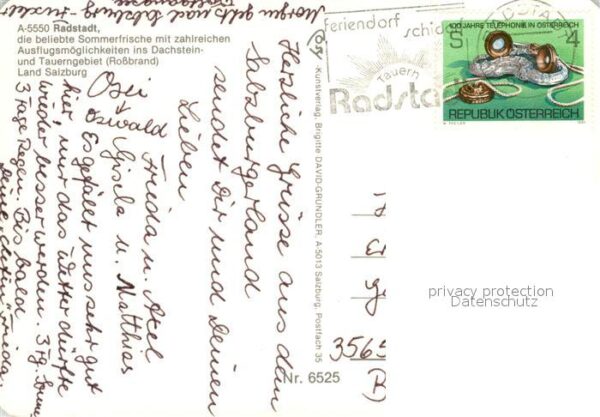 A-5550 Radstadt,
die beliebte Sommerfrische mit zahlreichen
Ausflugsmöglichkeiten ins Dachstein-
und Tauerngebiet (Roßbrand)
Land Salzburg
Herzliche Grüsse aus dem
Salzburgerland
sendet Dir und Deinen
Lieben
Frieda u. Axel
Oswald Gisela u. Matthias
Es gefällt uns sehr gut
hier, nur das Wetter dürfte
wieder besser werden. 3 Tg. Sonne
3 Tage Regen. Bis bald
Deine Frieda.
Morgen gehts nach Salzburg
-Kunstverlag, Brigitte DAVID-GRÜNDLER, A 5013 Salzburg, Postfach 35
Nr. 6525
feriendorf
Tauern
Radsta
100 JAHRE TELEPHONIE IN ÖSTERREICH
S 4
REPUBLIK ÖSTERREICH
privacy protection
Datenschutz
3565